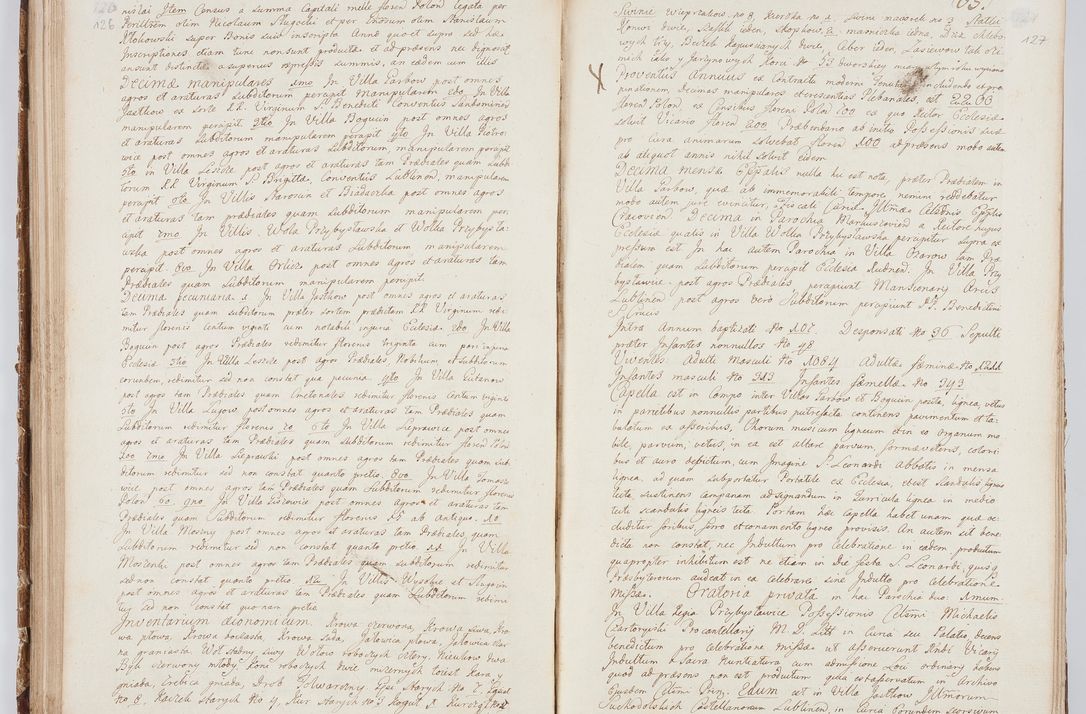 126
nislai Item Census a summa Capitali mille floren Polon legata per
Perillrem olim Nicolaum Slugocki et per Gnosum olim Stanislaum
Kłokowski super Bonis suis inscripta Anno quo et supra sed hæ
Inscriptiones etiam tunc non sunt producta et ad præsens nec dignosci
possunt distincta a superius expressis summis, an eædem cum illis
Decimæ manipulares 1mo In Villa Garbow post omnes
agros et araturas subditorum percipit manipularem 2do In Villa
Jastkow ex sorte RR. Virginum S. Benedicti Conventus Sandomirien
manipularem percipit. 3tio In Villa Bogucin post omnes agros
et araturas subditorum manipularem percipit 4to In Villa Piotro
wice post omnes agros et araturas subditorum, manipularem percipit
5to in Villa Lessce post agros et araturas tam Prædiales quam Subdi
torum RR Virginum S. Brigittæ, Conventus Lublinen, manipularem
percipit 6to In Villis Karorin et Biadaczka post omnes agros
et araturas tam prædiales quam subditorum manipularem per
cipit 7mo In Villis, Wola Przybysławska et Wolka Przybysła
wska post omnes agros et araturas Subditorum manipularem
percipit 8vo In Villa Orlicz post omnes agros et araturas tam
Prædiales quam subditorum manipularem percipit.
Decima pecuniaria 1 In Villa Jastkow post omnes agros et araturas
tam Prædiales quam subditorum præter sortem prædictam RR Virginum redi
mitur florenis Centum viginti cum notabili injuria Ecclesiæ 2do In Villa
Bogucin post agros Prædiales redimitur florenis triginta cum pari injuria
Ecclesiæ 3tio In Villa Lessce post agros Prædiales Nobilium et subditorum
eorundem, redimitur sed non constat qua pecunia 4to In Villa Lutanow
post agros tam Prædiales quam Cmetonales redimitur florenis Centum viginti
5to In Villa Lugow, post omnes agros et araturas tam Prædiales quam
Subditorum redimitur florenis 20 6to In Villa Sieprawice post omnes
agros et araturas tam Prædiales quam Subditorum redimitur floren Polon
200 7mo In Villa Sieprawki post omnes agros tam Prædiales quam sub
ditorum redimitur sed non constat quanto pretio 8vo In Villa Tomaszo
wice post omnes agros tam Prædiales quam Subditorum redimitur florenis
Polon 60 9no In Villa Sadzewice post omnes agros et araturas tam
Prædiales quam subditorum redimitur florenis 55 ab antiquo 10
In Villa Moszny post omnes agros et araturas tam Prædiales quam
Subditorum redimitur sed non constat quanto pretio 11 In Villa
Moszenki post omnes agros tam Prædiales quam subditorum redimitur
sed non constat quanto pretio 12 In Villis Wysokie et Slugocin
post omnes agros et araturas tam Prædiales quam Subditorum redimi
tur sed non constat quonam pretio
Inventarium œconomicum. Krowa czerwona, Krowa siwa, Kro
wa płowa, Krowa dockasta, Krowa sada, Jałowica płowa, Jałowica kar
na graniasta Woł stadny siwy Wołow roboczych cztery, Nieukow dwa
Byk czerwony młody, Koni roboczych dwie mierzynych toiest kara y
gniada, źrebica gniada, Drob Folwarczny Gęsi starych No 7, Gąsiąt
No 8, Kaczek starych No 4, Kur starych No 9 Kogut 1, Kurcząt No
127
Swinie Wieprzakow no 8, Kierska no 1, Swine macierek no 2 Statki
Konwi dwie, Szaflik ieden, Skopkow 2, maśniczka iedna, Dzież chlebo
wych trzy, Beczek kapuścianych dwie, Ceber ieden, Lasiewow tak Ozi
mych iako y Jarzynowych Korcy No 53 dworskiey
Proventus Annuus ex Contractu moderni includendo et pro
pinationem, decimas manipulares et crescentias Plebanales, est 2200
floren Polon, ex Censibus floreni Polon 700 ex quo Rector Ecclesiæ
solvit Vicario floren 200 Præbendario ab initio Possessionis suæ
pro Cura animarum solvebat floren 100 ad præsens modo autem
ab aliquot annis nihil solvit eidem
Decima mensæ Eppalis nulla hic est nota, præter Prædialem in
Villa Garbow, quæ ab immemorabili tempore nemini reddebatur
modo autem jure evincitur, Fiscali Curiæ Illmi Celsitudinis Eppalis
Cracovien Decima in Parochia Markuszovien a Rectore hujus
Ecclesiæ qualis in Villa Wolka Przybysławska percipitur supra ex
pressum est In hac autem Parochia in Villa Ozarow tam Præ
dialem quam subditorum percipit Ecclesia Kubnen. In Villa Przy
bysławice post agros Prædiales, percipiunt Mansionarij Arcis
Lublinen, post agros vero Subditorum percipiunt PP. Benedictini
Intra Annum baptizati No 107. Desponsati No 36 Sepulti
præter Infantes nonnullos No 48
Viventes Adulti Masculi No 1084 Adultæ fœminæ No
Infantes masculi No 313 Infantes fœmellæ No 343
Capella est in Campo inter Villas Garbow et Boguczin posita, lignea, vetus
in parietibus nonnullis partibus putrefacta continens pavimentum et ta
bulatum ex asseribus, Chorum musicum ligneum et in eo organum mo
bile, parvum, vetus, in ea est altare parvum formæ veteris, colori
bus et auro depictum, cum Imagine S. Leonardi Abbatis in mensa
lignea, ad quam subportatur Portatile ex Ecclesia, et est scandulis ligneis
tecta, sustinens campanam ad signandum in Turricula lignea in medio
tecti scandulis ligneis tecta. Portam hæc Capella habet unam quæ oc
cluditur foribus, ferro et conamento ligneo provisis. An autem sit bene
dicta non constat, nec Indultum pro Celebratione in eadem productum
quapropter inhibitum est ne etiam in die festa S. Leonardi, quisq
Præsbyterorum audeat in ea celebrare sine Indulto pro celebratione
missæ. Oratoria privata in hac Parochia duo: Primum.
In Villa Regia Przybysławice Possessionis Celsmi Michaelis
Czartoryski Procancellarij M. D. Litt in Curia seu Palatio decens
benedictum pro celebratione missæ ut asseruerunt Rndi Vicarij
Indultum a Sacra Nuntiatura cum admissione Loci ordinarij habens
quod ad præsens non est productum quia est asservatum in Archivo
Ejusdem Celsmi Princ. Secundum est in Villa Jastkow Illmorum
Suchodolskich Castellanorum Lublinen, in Curia Eorundem seorsivum